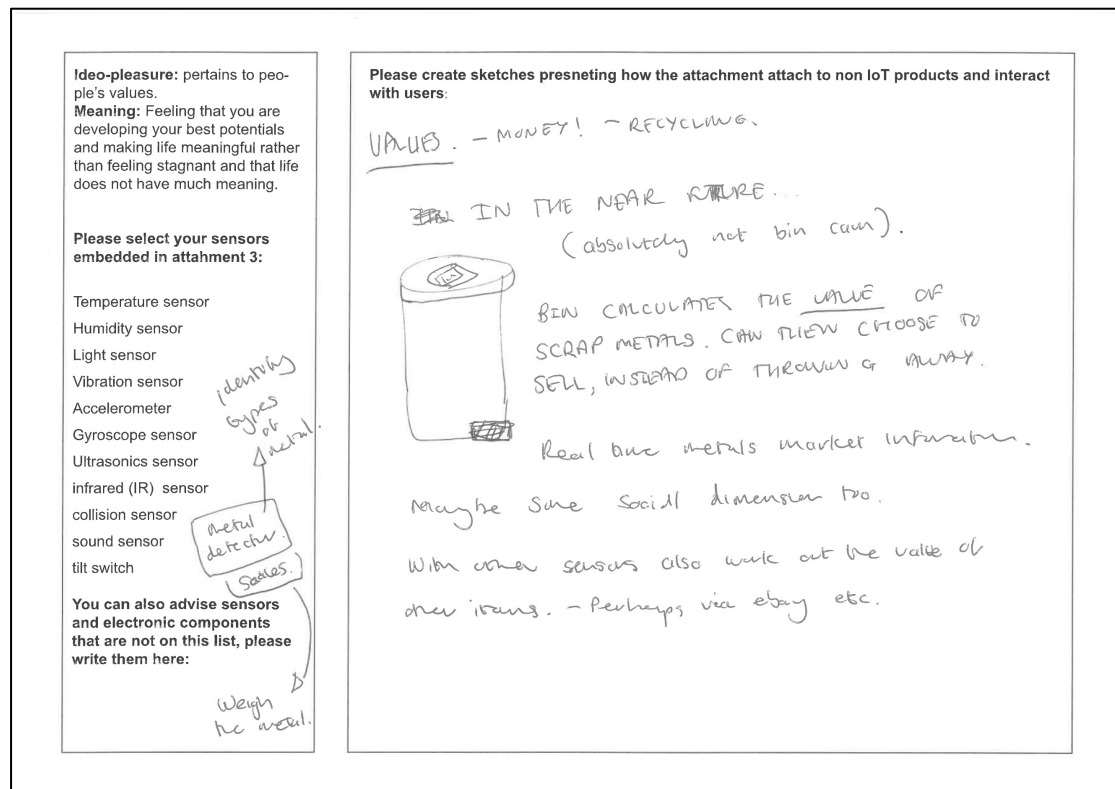 Ideo-pleasure: pertains to peo-
ple's values.
Meaning: Feeling that you are
developing your best potentials
and making life meaningful rather
than feeling stagnant and that life
does not have much meaning.
Please select your sensors
embedded in attahment 3:
Temperature sensor
Humidity sensor
Light sensor
Vibration sensor
Accelerometer
Gyroscope sensor
Ultrasonics sensor
infrared (IR) sensor
collision sensor
sound sensor
tilt switch
identify
types
of
metal.
metal
detector.
Scales.
You can also advise sensors
and electronic components
that are not on this list, please
write them here:
Weigh
the metal.
Please create sketches presneting how the attachment attach to non IoT products and interact
with users:
VALUES. - MONEY! - RECYCLING.
IN THE NEAR FUTURE...
(absolutely not bin cam).
BIN CALCULATES THE VALUE OF
SCRAP METALS. CAN THEN CHOOSE TO
SELL, INSTEAD OF THROWING AWAY.
Real time metals market information.
Maybe some social dimension too.
With other sensors also work out the value of
other items. - Perhaps via ebay etc.